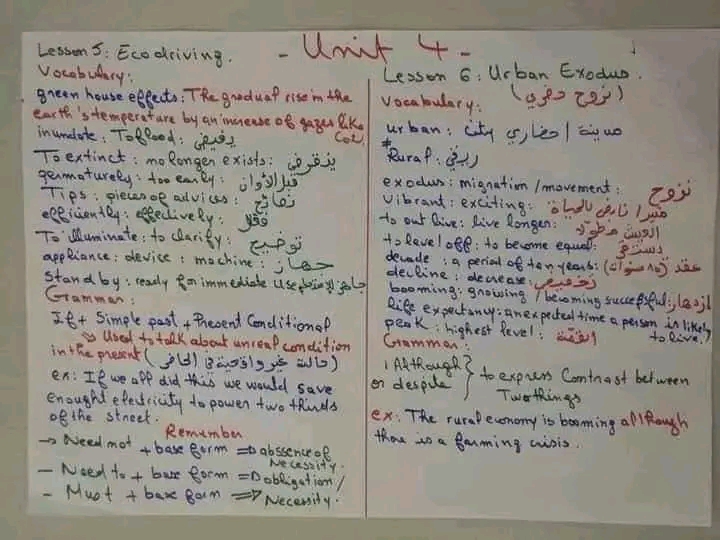 - Unit 4 -
Lesson 5: Ecodriving.
Vocabulary:
green house effects: The gradual rise in the
earth's temperature by an increase of gazes like
Co2.
inundate: To flood: يفيض
To extinct: no longer exists: ينقرض
germaturely: too early: قبل الأوان
Tips: pieces of advices: نصائح
efficiently: effectively:
To illuminate: to clarify: توضيح
appliance: device: machine: جهاز
Stand by: ready for immediate use جاهز للإستعمال
Grammar:
If + Simple past + Present Conditional
Used to talk about unreal condition
in the present (حالة غير واقعية في الحاضر)
ex: If we all did this we would save
enought electricity to power two thirds
of the street.
Remember
→ Need not + base form => abssence of
Necessity.
- Need to + base form => obligation/
- Must + base form => Necessity.
Lesson 6: Urban Exodus.
(نزوح ريفي)
Vocabulary:
urban: city مدينة / حضاري
* Rural: ريفي
exodus: migration / movement: نزوح
Vibrant: exciting: بالحياة
to out live: live longer:
to level off: to become equal:
decade: a period of ten years: عقد (10 سنوات)
decline: decrease:
booming: growing / becoming successful: ازدهار
life expectany: an expected time a person is likely
to live.
peak: highest level: القمة
Grammar:
Although
or despite } to express Contrast between
Two things
ex: The rural economy is booming although
there is a farming crisis.